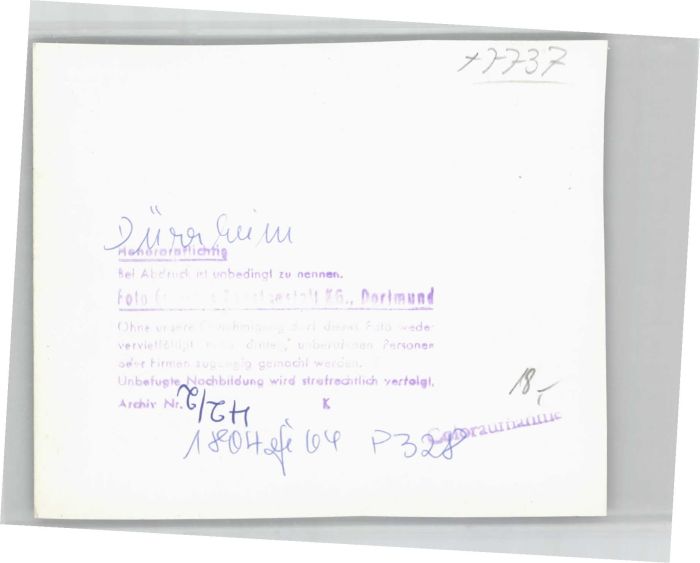 +7737
Dürrheim
Honorarpflichtig
Bei Abdruck ist unbedingt zu nennen.
Foto KG., Dortmund
Ohne unsere Genehmigung darf dieses Foto weder
vervielfältigt noch dritten, unberufenen Personen
oder Firmen zugängig gemacht werden.
Unbefugte Nachbildung wird strafrechtlich verfolgt.
Archiv Nr. K
18,-
P328
Coloraufnahme